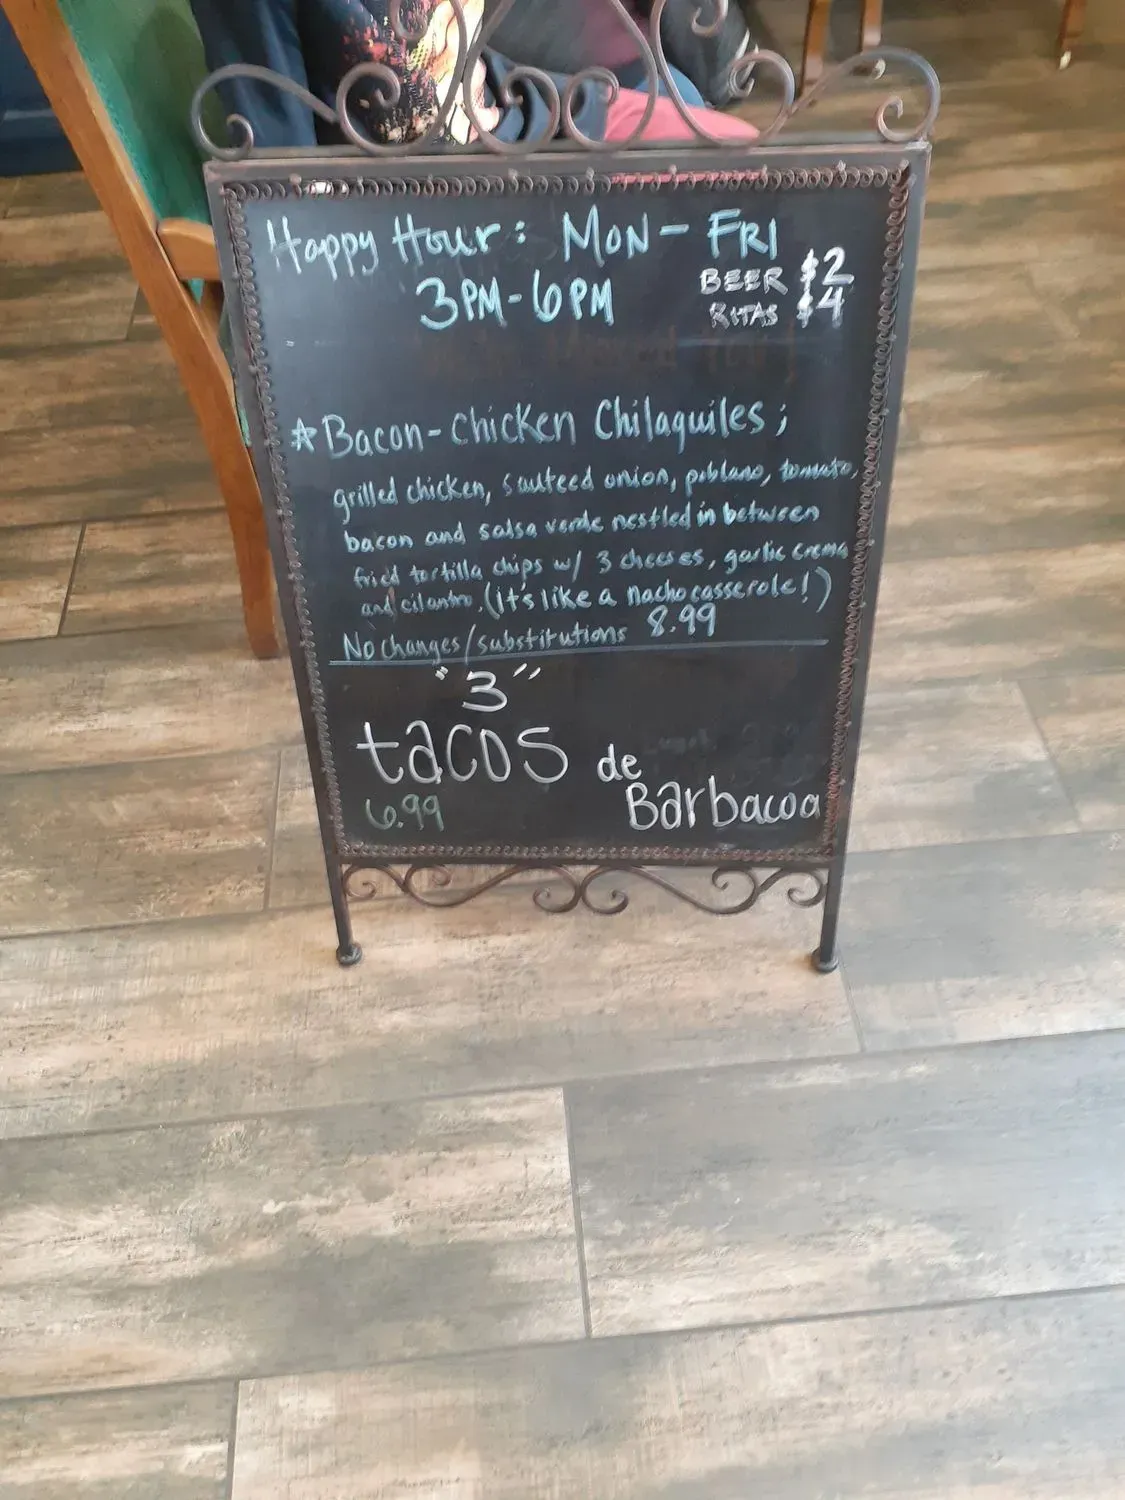 Happy Hour: MON - FRI
3PM-6PM
BEER $2
RITAS $4
☆Bacon-Chicken Chilaquiles;
grilled chicken, sauteed onion, poblano, tomato,
bacon and salsa verde nestled in between
fried tortilla chips w/ 3 cheeses, garlic crema
and cilantro. (it's like a nacho casserole!)
No changes/substitutions 8.99
"3"
tacos de
6.99 Barbacoa